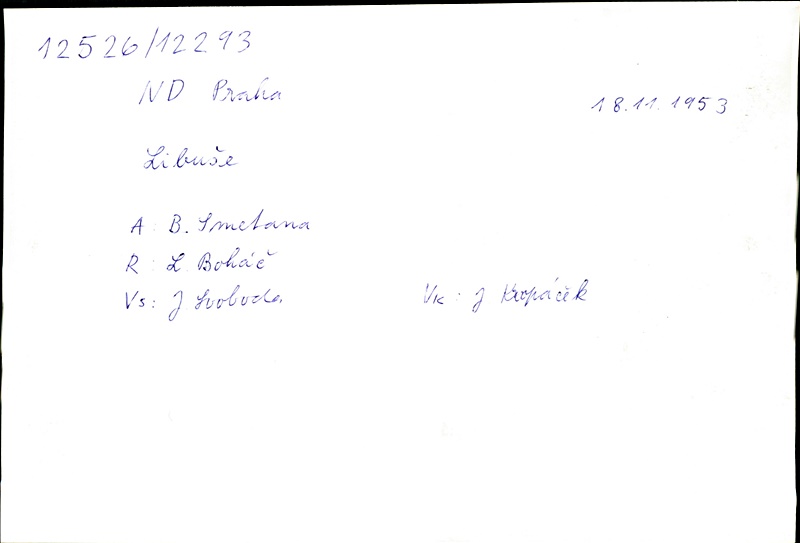 12526/12293
ND Praha
18.11.1953
Libuše
A: B. Smetana
R: L. Boháč
Vs: J Svoboda
Vk: J Kropáček